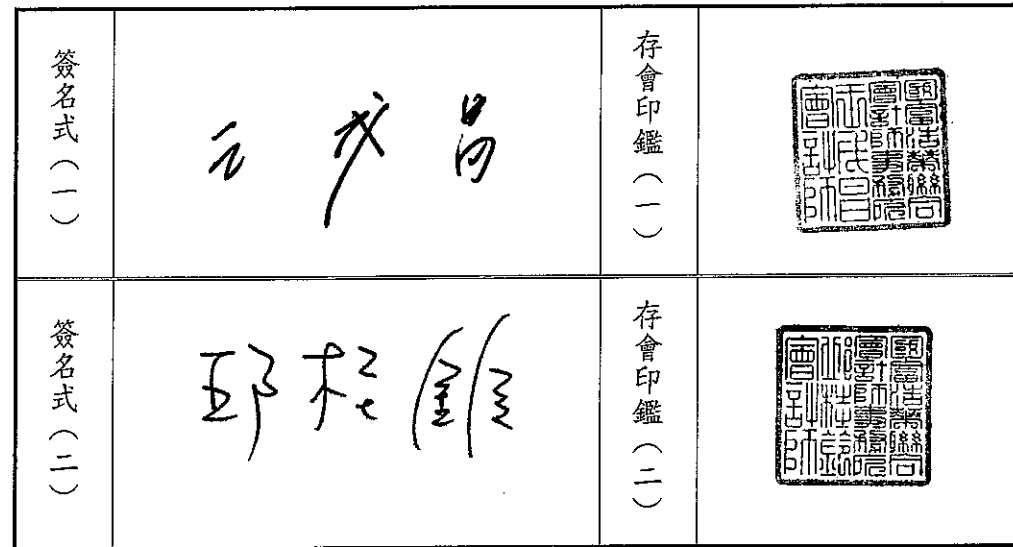 簽名式（一）
存會印鑑（一）
國富浩華聯合
會計師事務所
會計師
簽名式（二）
邱桂鈴
存會印鑑（二）
國富浩華聯合
會計師事務所
邱桂鈴
會計師